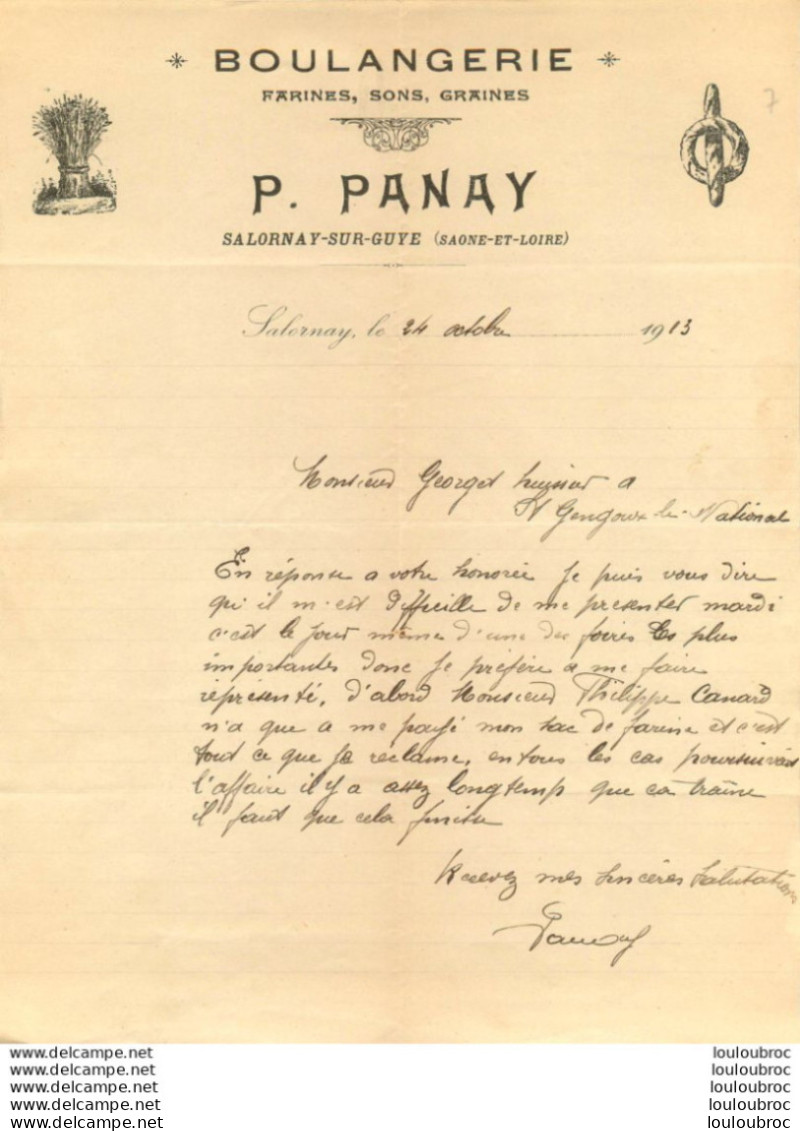 BOULANGERIE
FARINES, SONS, GRAINES
7
P. PANAY
SALORNAY-SUR-GUYE (SAONE-ET-LOIRE)
Salornay, le 24 octobre 1913
Monsieur Georget huissier a
St Gengoux le National
En réponse a votre honorée Je puis vous dire
qu il m'est difficille de me presenter mardi
c'est le jour même d'une des foires les plus
importantes donc Je préfère a me faire
représenté, d'abord Monsieur Philippe Canard
n'a que a me payé mon sac de farine et c'est
tout ce que Je réclame, en tous les cas poursuivez
l'affaire il y a assez longtemp que ca traine
il faut que cela finisse
Recevez mes sincères salutations
Panay
www.delcampe.net louloubroc
www.delcampe.net louloubroc
www.delcampe.net louloubroc
www.delcampe.net louloubroc
www.delcampe.net louloubroc